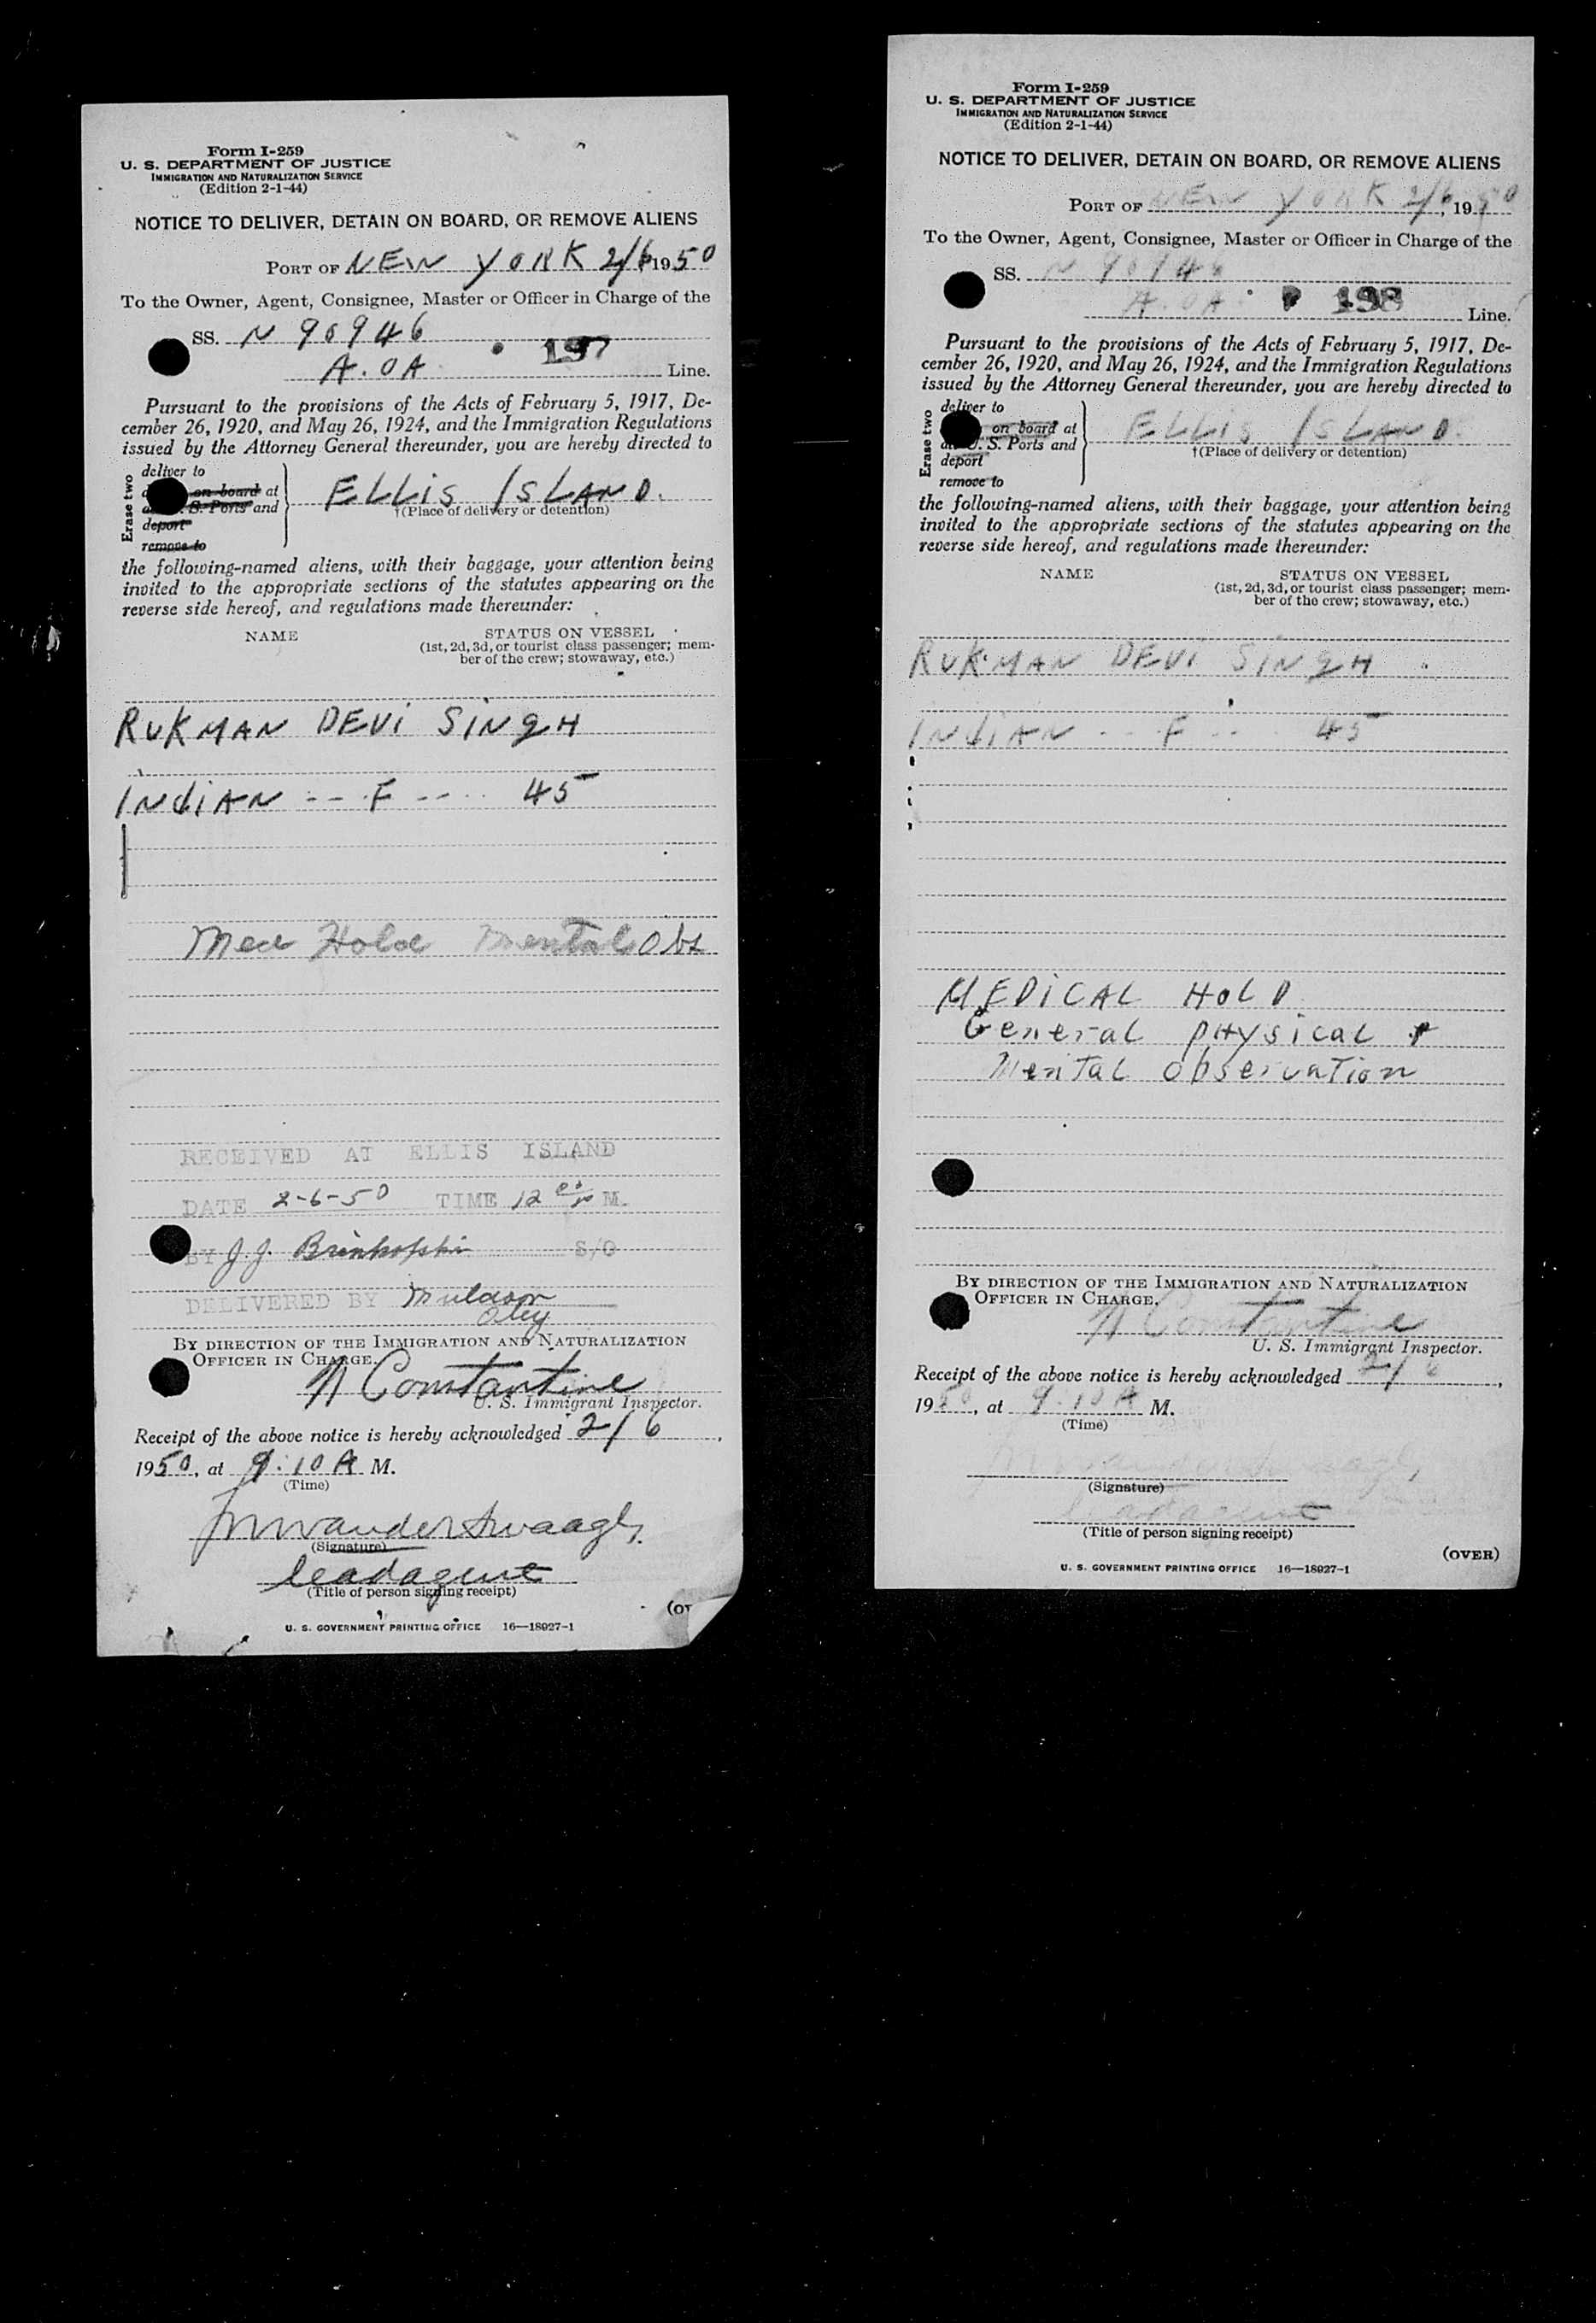 Form I-259
U. S. DEPARTMENT OF JUSTICE
IMMIGRATION AND NATURALIZATION SERVICE
(Edition 2-1-44)
NOTICE TO DELIVER, DETAIN ON BOARD, OR REMOVE ALIENS
PORT OF NEW YORK 2/6 1950
To the Owner, Agent, Consignee, Master or Officer in Charge of the
SS. N 90946
197
A.OA Line.
Pursuant to the provisions of the Acts of February 5, 1917, De-
cember 26, 1920, and May 26, 1924, and the Immigration Regulations
issued by the Attorney General thereunder, you are hereby directed to
Erase two
deliver to
on board at
S. Ports and
deport
remove to
ELLIS ISLAND.
†(Place of delivery or detention)
the following-named aliens, with their baggage, your attention being
invited to the appropriate sections of the statutes appearing on the
reverse side hereof, and regulations made thereunder:
NAME STATUS ON VESSEL
(1st, 2d, 3d, or tourist class passenger; mem-
ber of the crew; stowaway, etc.)
RUKMAN DEVI SINGH
INdiAN -- F ---- 45
Med Hold Mental Obs
RECEIVED AT ELLIS ISLAND
DATE 2-6-50 TIME 12 M.
BY J.J. S/O
DELIVERED BY
BY DIRECTION OF THE IMMIGRATION AND NATURALIZATION
OFFICER IN CHARGE.
N Constantine
U. S. Immigrant Inspector.
Receipt of the above notice is hereby acknowledged 2/6,
1950, at 9:10 A M.
(Time)
(Signature)
leadagent
(Title of person signing receipt)
U. S. GOVERNMENT PRINTING OFFICE 16—18927-1
Form I-259
U. S. DEPARTMENT OF JUSTICE
IMMIGRATION AND NATURALIZATION SERVICE
(Edition 2-1-44)
NOTICE TO DELIVER, DETAIN ON BOARD, OR REMOVE ALIENS
PORT OF NEW YORK 2/6, 1950
To the Owner, Agent, Consignee, Master or Officer in Charge of the
SS. N 90946
198
A.OA Line.
Pursuant to the provisions of the Acts of February 5, 1917, De-
cember 26, 1920, and May 26, 1924, and the Immigration Regulations
issued by the Attorney General thereunder, you are hereby directed to
Erase two
deliver to
on board at
U. S. Ports and
deport
remove to
ELLIS ISLAND.
†(Place of delivery or detention)
the following-named aliens, with their baggage, your attention being
invited to the appropriate sections of the statutes appearing on the
reverse side hereof, and regulations made thereunder:
NAME STATUS ON VESSEL
(1st, 2d, 3d, or tourist class passenger; mem-
ber of the crew; stowaway, etc.)
RUKMAN DEVI SINGH
INdiAN -- F -- 45
MEDICAL HOLD
General physical +
Mental observation
BY DIRECTION OF THE IMMIGRATION AND NATURALIZATION
OFFICER IN CHARGE.
N Constantine
U. S. Immigrant Inspector.
Receipt of the above notice is hereby acknowledged 2/6,
1950, at 9:10 A M.
(Time)
(Signature)
leadagent
(Title of person signing receipt)
(OVER)
U. S. GOVERNMENT PRINTING OFFICE 16—18927-1